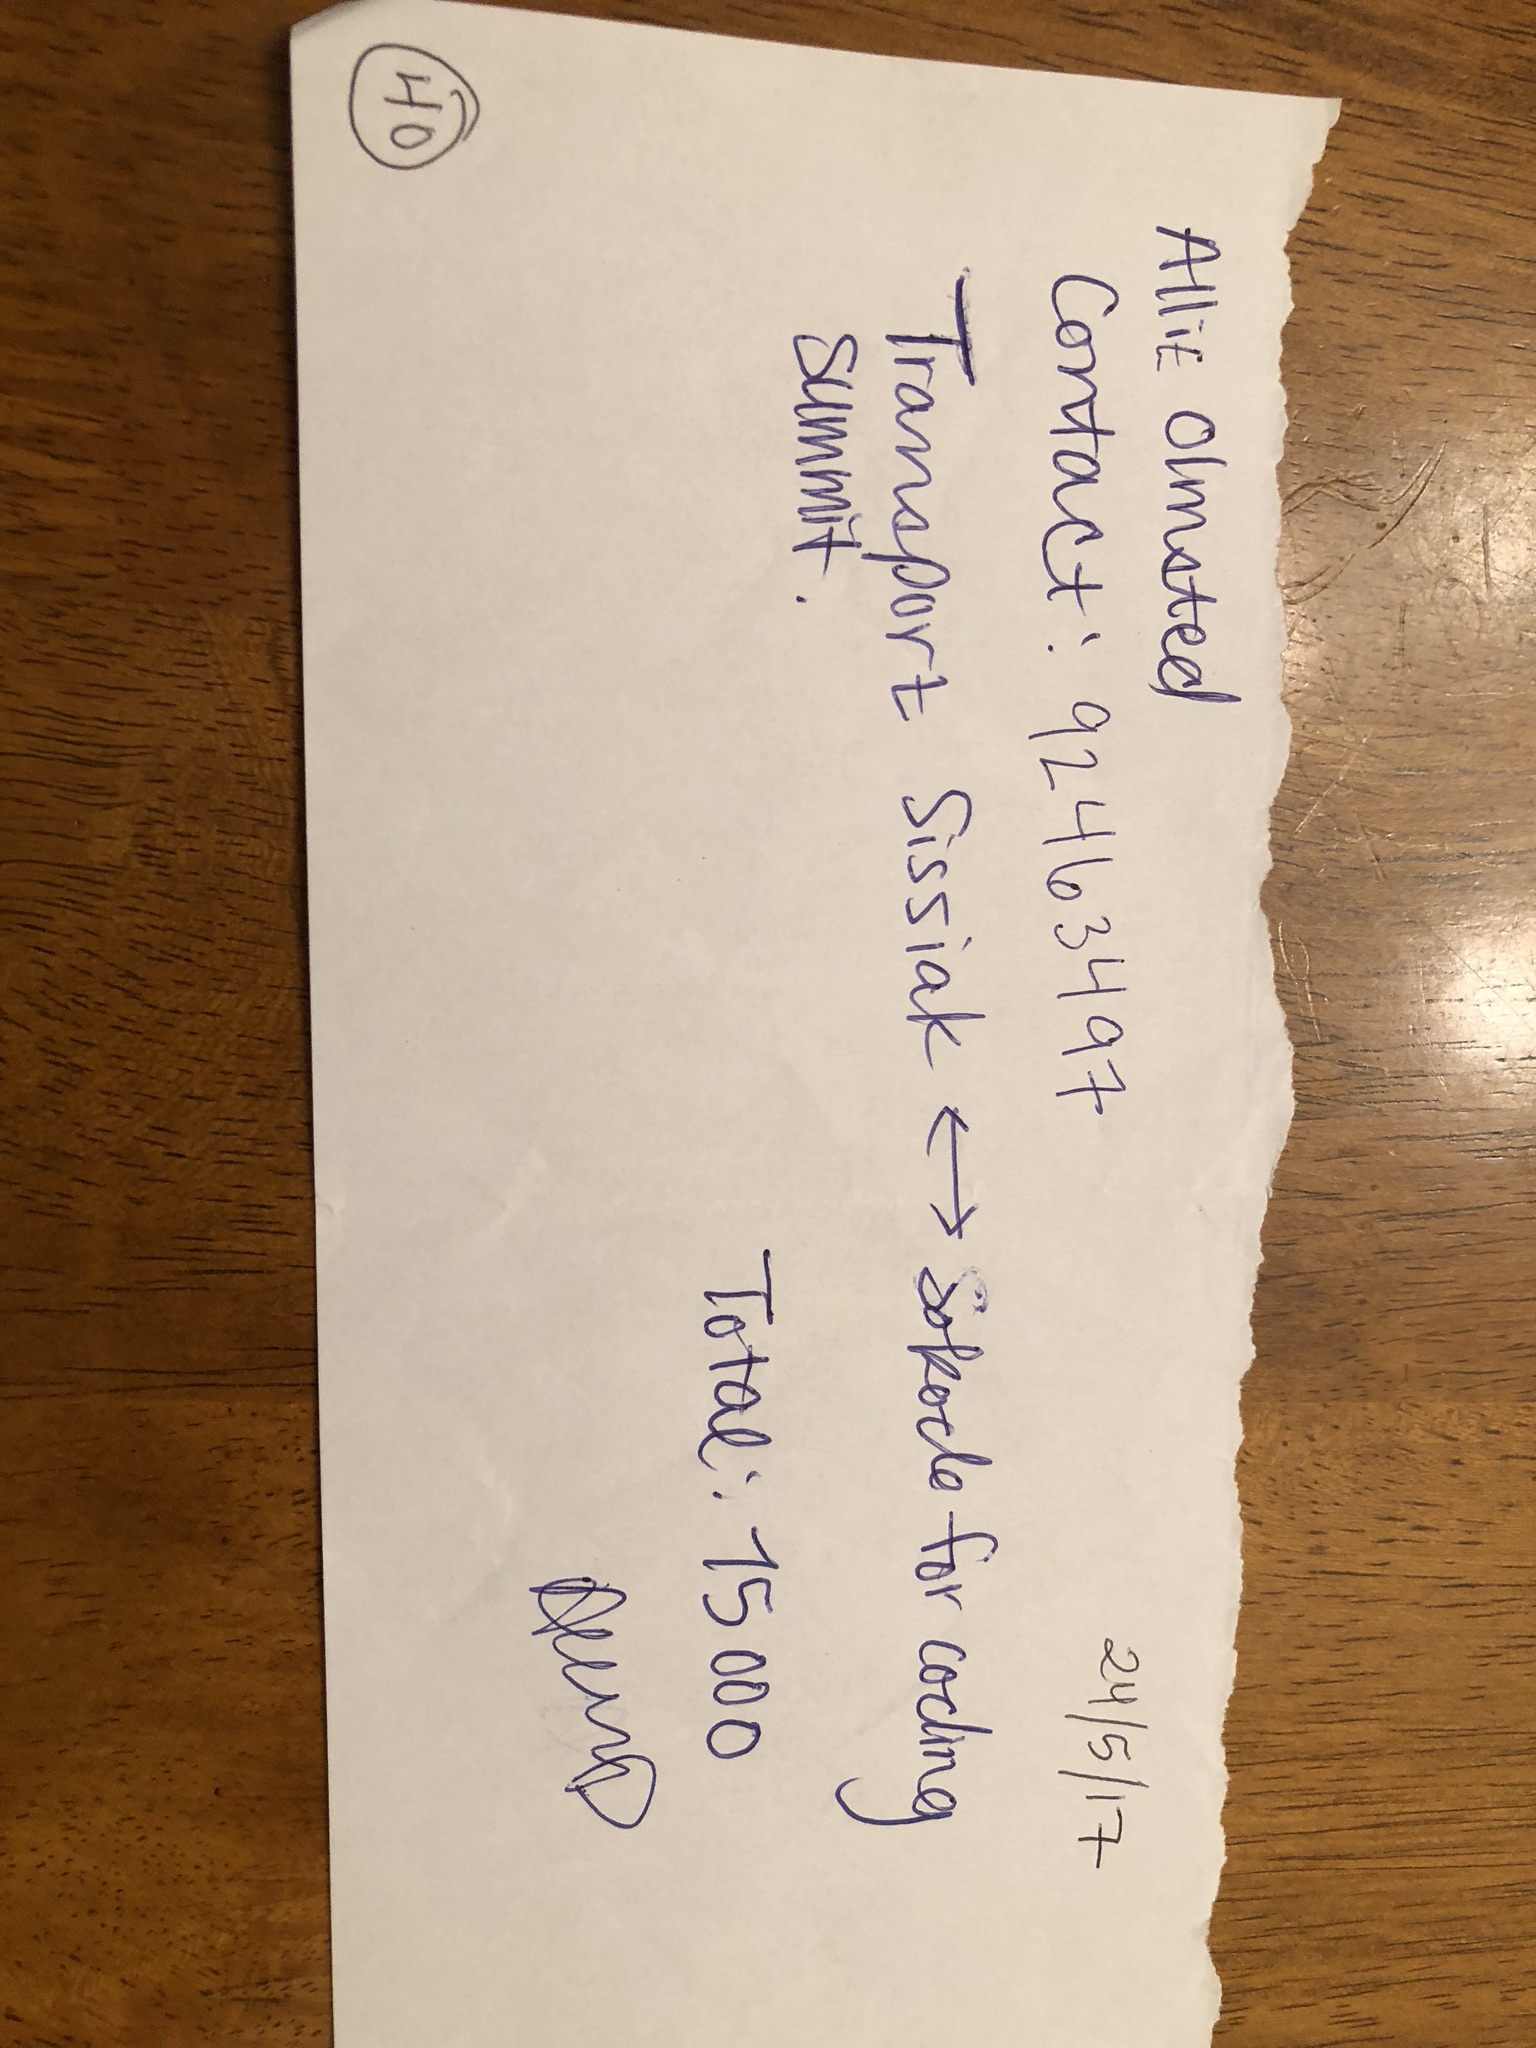 Allie Olmsted
24/5/17
Contact: 92463497
Transport Sissiak ↔ Sokode for coding
summit.
Total: 15 000
40